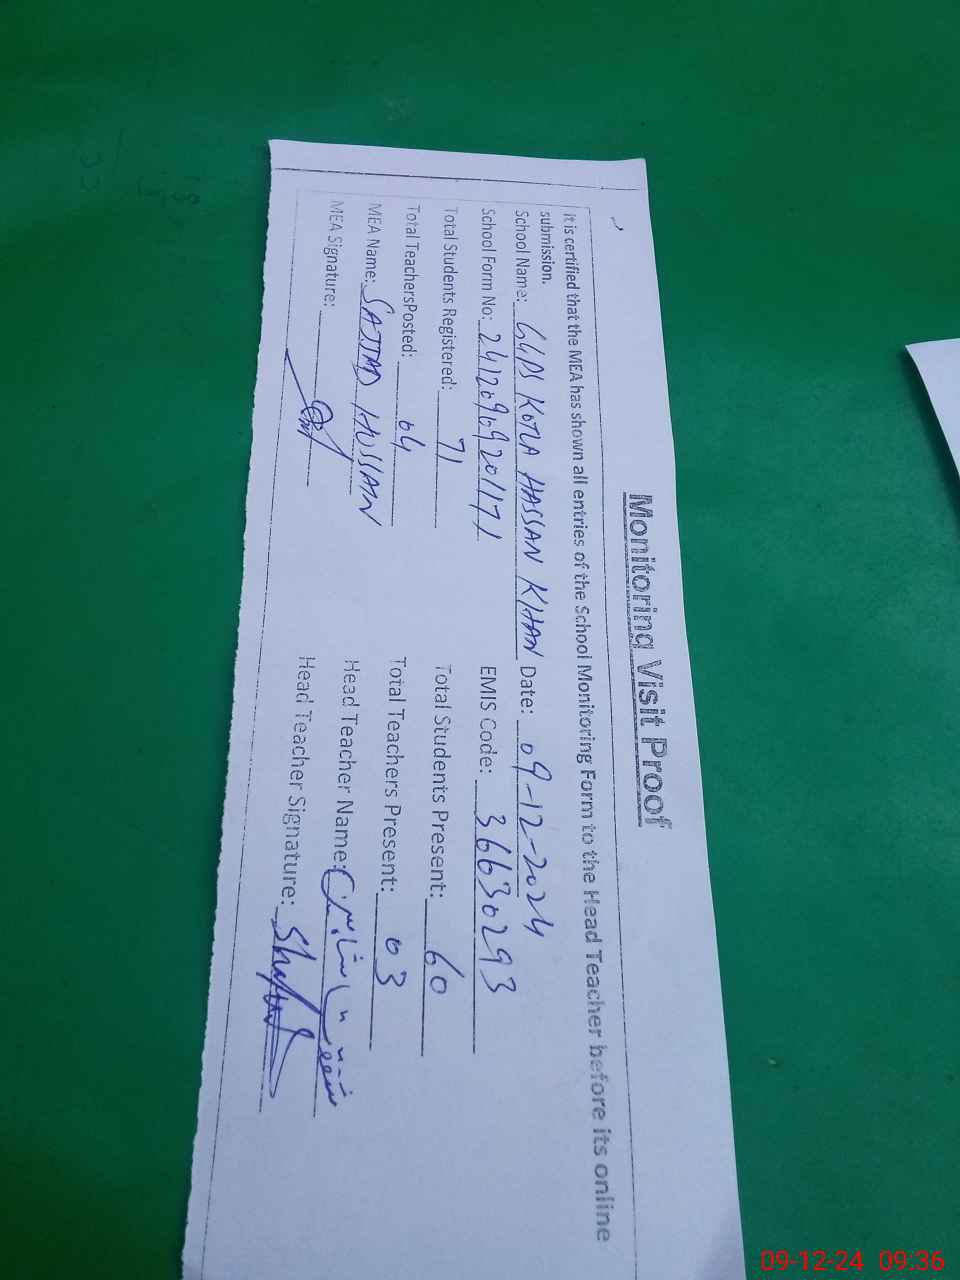 Monitoring Visit Proof
It is certified that the MEA has shown all entries of the School Monitoring Form to the Head Teacher before its online
submission.
School Name: GGPS KOTLA HASSAN KHAN Date: 09-12-2024
School Form No: 2412090920171 EMIS Code: 36630293
Total Students Registered: 71 Total Students Present: 60
Total TeachersPosted: 04 Total Teachers Present: 03
MEA Name: SAJJAD HUSSAIN Head Teacher Name:
MEA Signature: Head Teacher Signature:
09-12-24 09:36